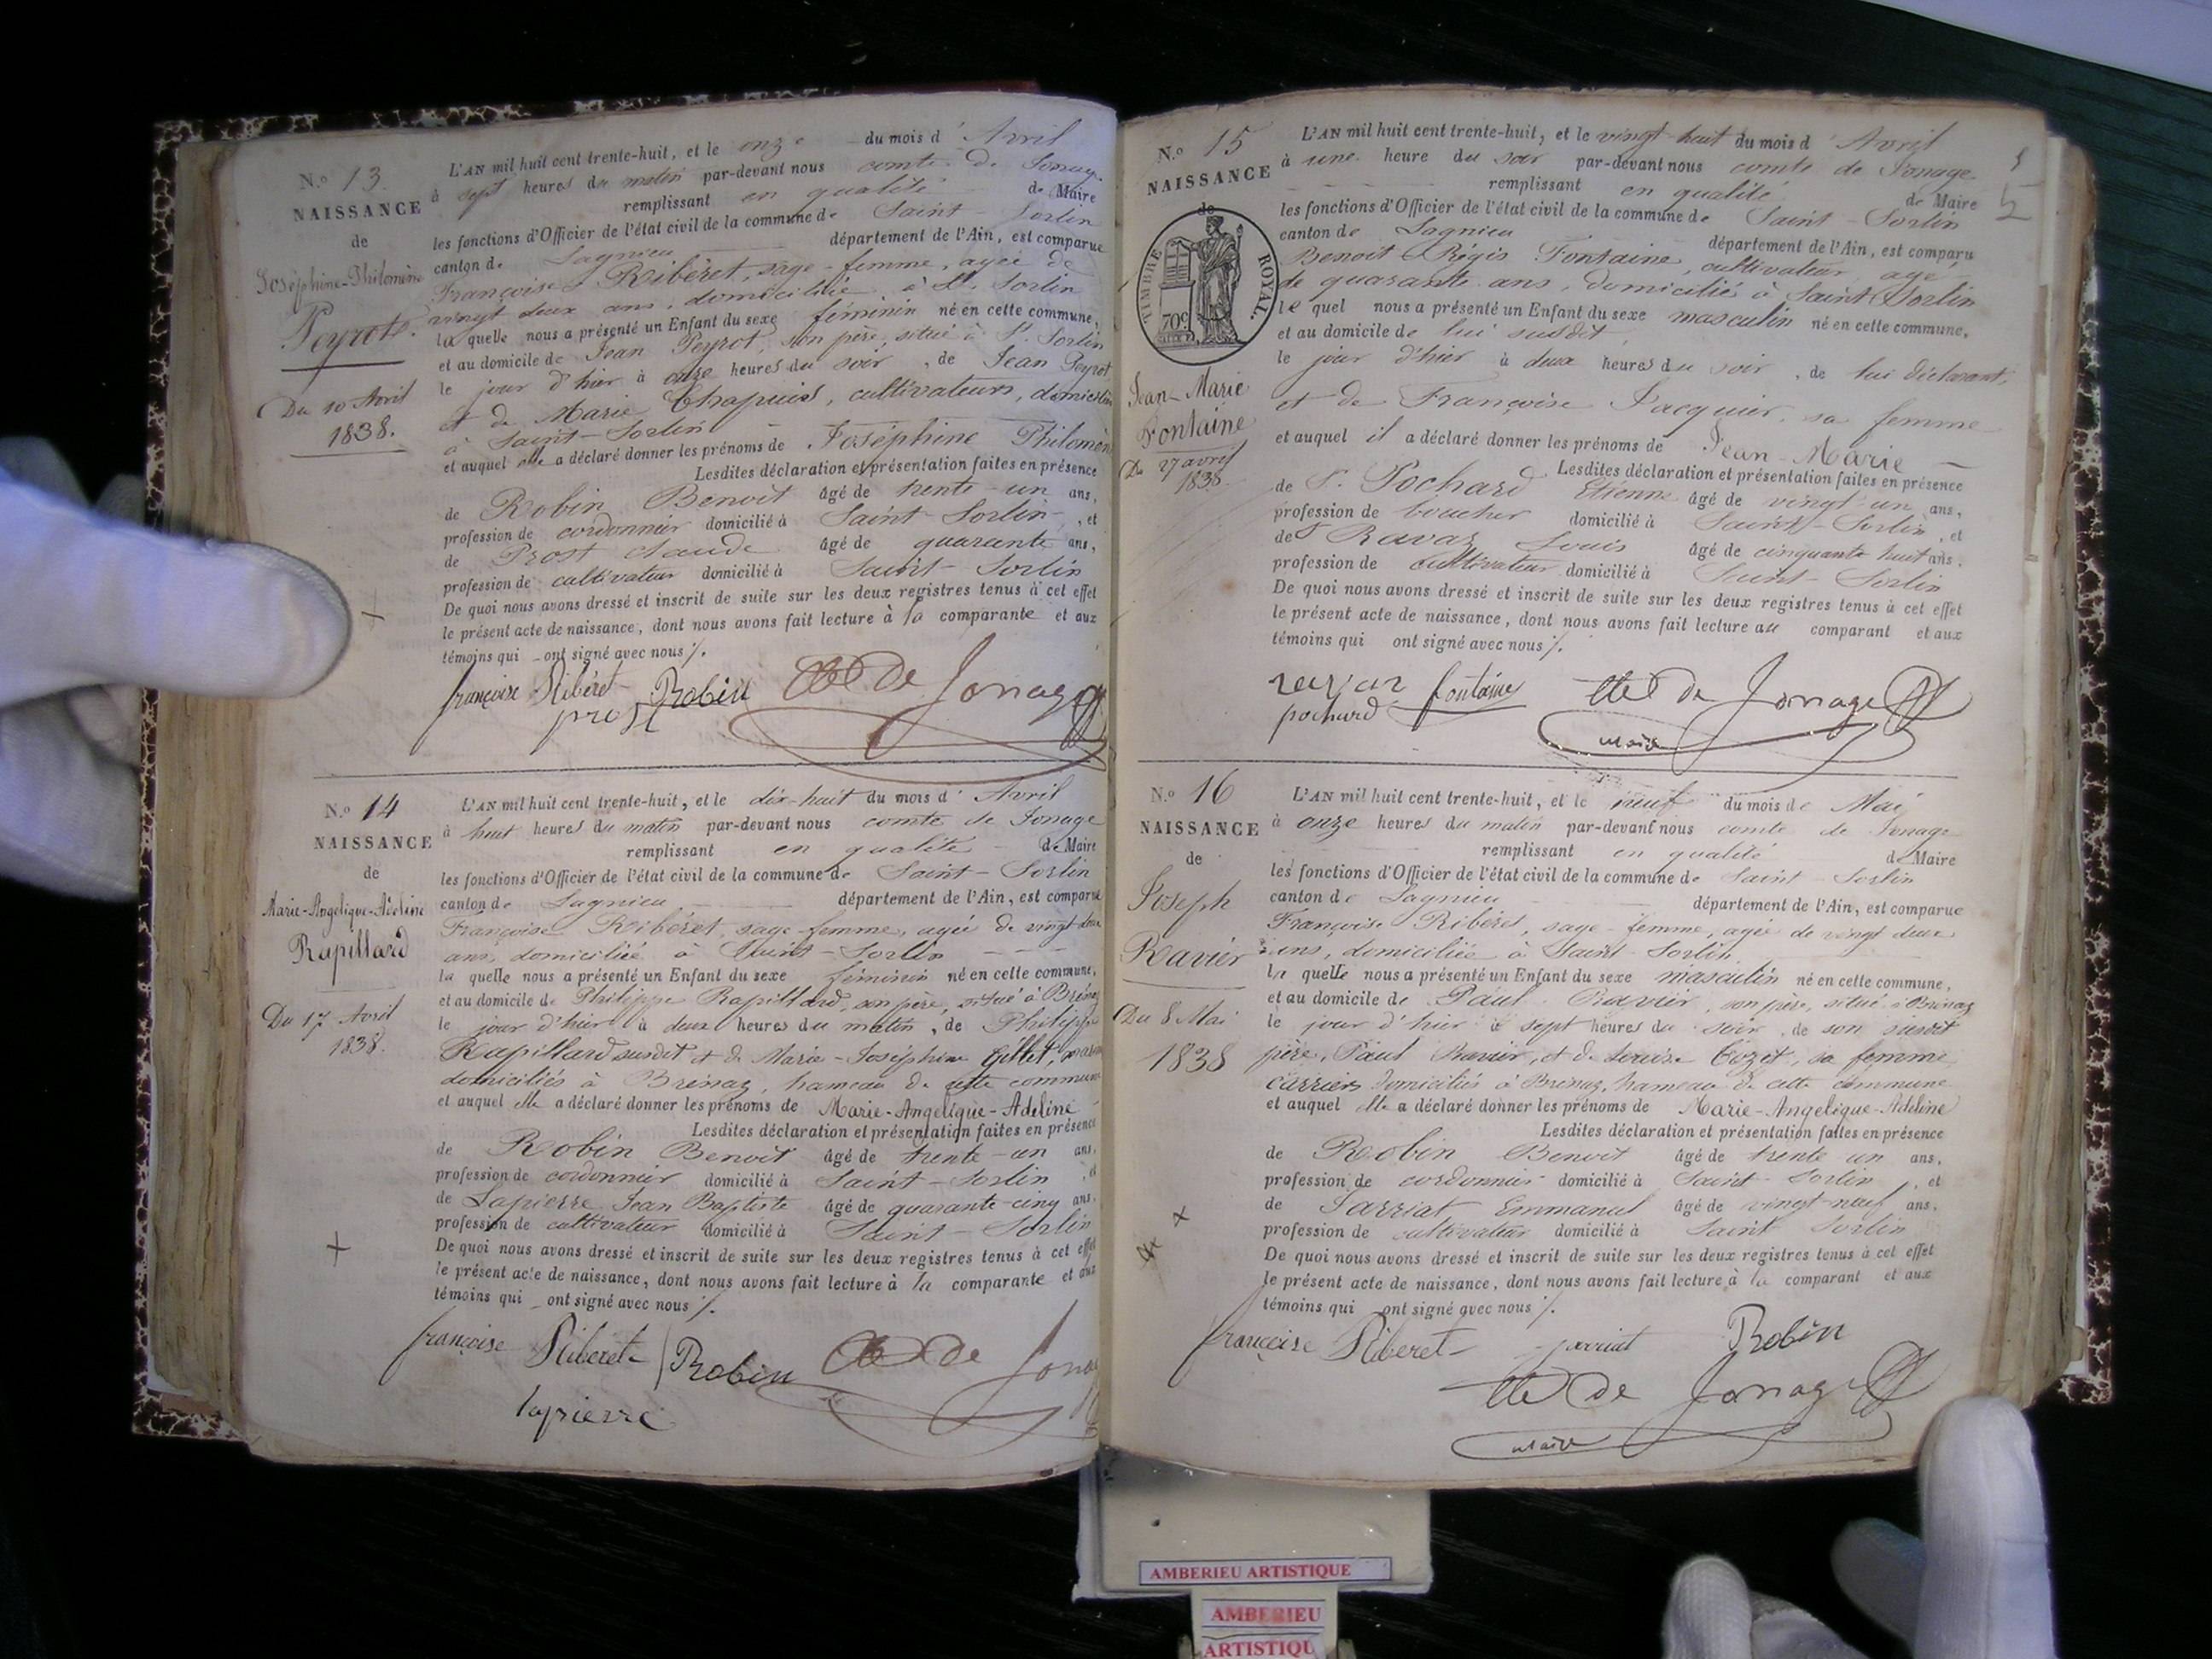 N.o 13.
NAISSANCE
de
Joséphine-Philomène
Peyrot.
Du 10 Avril
1838.
L'AN mil huit cent trente-huit, et le onze du mois d' Avril
à sept heures du matin par-devant nous comte de Jonage
remplissant en qualité de Maire
les fonctions d'Officier de l'état civil de la commune de Saint-Sorlin
canton de Lagnieu département de l'Ain, est comparue
Françoise Ribéret, sage-femme, agée de
vingt deux ans, domiciliée à St. Sorlin
laquelle nous a présenté un Enfant du sexe féminin né en cette commune,
et au domicile de Jean Peyrot, son père, situé à St. Sorlin
le jour d'hier à onze heures du soir, de Jean Peyrot
et de Marie Chapuis, cultivateurs, domiciliés
à Saint-Sorlin
et auquel elle a déclaré donner les prénoms de Joséphine Philomène
Lesdites déclaration et présentation faites en présence
de Robin Benoit âgé de trente-un ans,
profession de cordonnier domicilié à Saint-Sorlin, et
de Prost Claude âgé de quarante ans,
profession de cultivateur domicilié à Saint-Sorlin
De quoi nous avons dressé et inscrit de suite sur les deux registres tenus à cet effet
le présent acte de naissance, dont nous avons fait lecture à la comparante et aux
témoins qui ont signé avec nous %.
françoise Riberet Robin Cte De Jonage
prost
N.o 14
NAISSANCE
de
Marie-Angelique-Adeline
Rapillard
Du 17 Avril
1838.
L'AN mil huit cent trente-huit, et le dix-huit du mois d' Avril
à huit heures du matin par-devant nous comte de Jonage
remplissant en qualité de Maire
les fonctions d'Officier de l'état civil de la commune de Saint-Sorlin
canton de Lagnieu département de l'Ain, est comparue
Françoise Ribéret, sage-femme, agée de vingt deux
ans, domiciliée à Saint-Sorlin
laquelle nous a présenté un Enfant du sexe féminin né en cette commune,
et au domicile de Philippe Rapillard, son père, situé à Brénaz
le jour d'hier à deux heures du matin, de Philippe
Rapillard susdit et de Marie-Joséphine Gillet,
domiciliés à Brénaz, hameau de cette commune
et auquel elle a déclaré donner les prénoms de Marie-Angelique-Adeline
Lesdites déclaration et présentation faites en présence
de Robin Benoit âgé de trente-un ans,
profession de cordonnier domicilié à Saint-Sorlin, et
de Lapierre Jean Baptiste âgé de quarante-cinq ans,
profession de cultivateur domicilié à Saint-Sorlin
De quoi nous avons dressé et inscrit de suite sur les deux registres tenus à cet effet
le présent acte de naissance, dont nous avons fait lecture à la comparante et aux
témoins qui ont signé avec nous %.
françoise Riberet Robin Cte De Jonage
lapierre
N.o 15
NAISSANCE
de
TIMBRE ROYAL.
70c
Jean-Marie
Fontaine
Du 27 avril
1838
5
L'AN mil huit cent trente-huit, et le vingt-huit du mois d' Avril
à une heure du soir par-devant nous comte de Jonage
remplissant en qualité de Maire
les fonctions d'Officier de l'état civil de la commune de Saint-Sorlin
canton de Lagnieu département de l'Ain, est comparu
Benoit Régis Fontaine, cultivateur agé
de quarante ans, domicilié à Saint Sorlin
lequel nous a présenté un Enfant du sexe masculin né en cette commune,
et au domicile de lui susdit
le jour d'hier à deux heures du soir, de lui déclarant,
et de Françoise Jacquier, sa femme
et auquel il a déclaré donner les prénoms de Jean-Marie
Lesdites déclaration et présentation faites en présence
de S. Pochard Etienne âgé de vingt un ans,
profession de boucher domicilié à Saint-Sorlin, et
de S Ravaz Louis âgé de cinquante huit ans,
profession de cultivateur domicilié à Saint-Sorlin
De quoi nous avons dressé et inscrit de suite sur les deux registres tenus à cet effet
le présent acte de naissance, dont nous avons fait lecture au comparant et aux
témoins qui ont signé avec nous %.
ravaz fontaine Cte De Jonage
pochard maire
N.o 16
NAISSANCE
de
Joseph
Ravier
Du 8 Mai
1838
L'AN mil huit cent trente-huit, et le neuf du mois de Mai
à onze heures du matin par-devant nous comte de Jonage
remplissant en qualité de Maire
les fonctions d'Officier de l'état civil de la commune de Saint-Sorlin
canton de Lagnieu département de l'Ain, est comparue
Françoise Ribéret, sage-femme, agée de vingt deux
ans, domiciliée à Saint-Sorlin
laquelle nous a présenté un Enfant du sexe masculin né en cette commune,
et au domicile de Paul Ravier, son père, situé à Brénaz
le jour d'hier à sept heures du soir, de son susdit
père, Paul Ravier, et de Louise Cozet, sa femme
carriers domiciliés à Brénaz, hameau de cette commune
et auquel elle a déclaré donner les prénoms de Marie-Angelique-Adeline
Lesdites déclaration et présentation faites en présence
de Robin Benoit âgé de trente un ans,
profession de cordonnier domicilié à Saint-Sorlin, et
de Sarriat Emmanuel âgé de vingt-neuf ans,
profession de cultivateur domicilié à Saint Sorlin
De quoi nous avons dressé et inscrit de suite sur les deux registres tenus à cet effet
le présent acte de naissance, dont nous avons fait lecture à la comparant et aux
témoins qui ont signé avec nous %.
françoise Riberet sarriat Robin
Cte De Jonage
maire
AMBERIEU ARTISTIQUE
AMBERIEU
ARTISTIQU